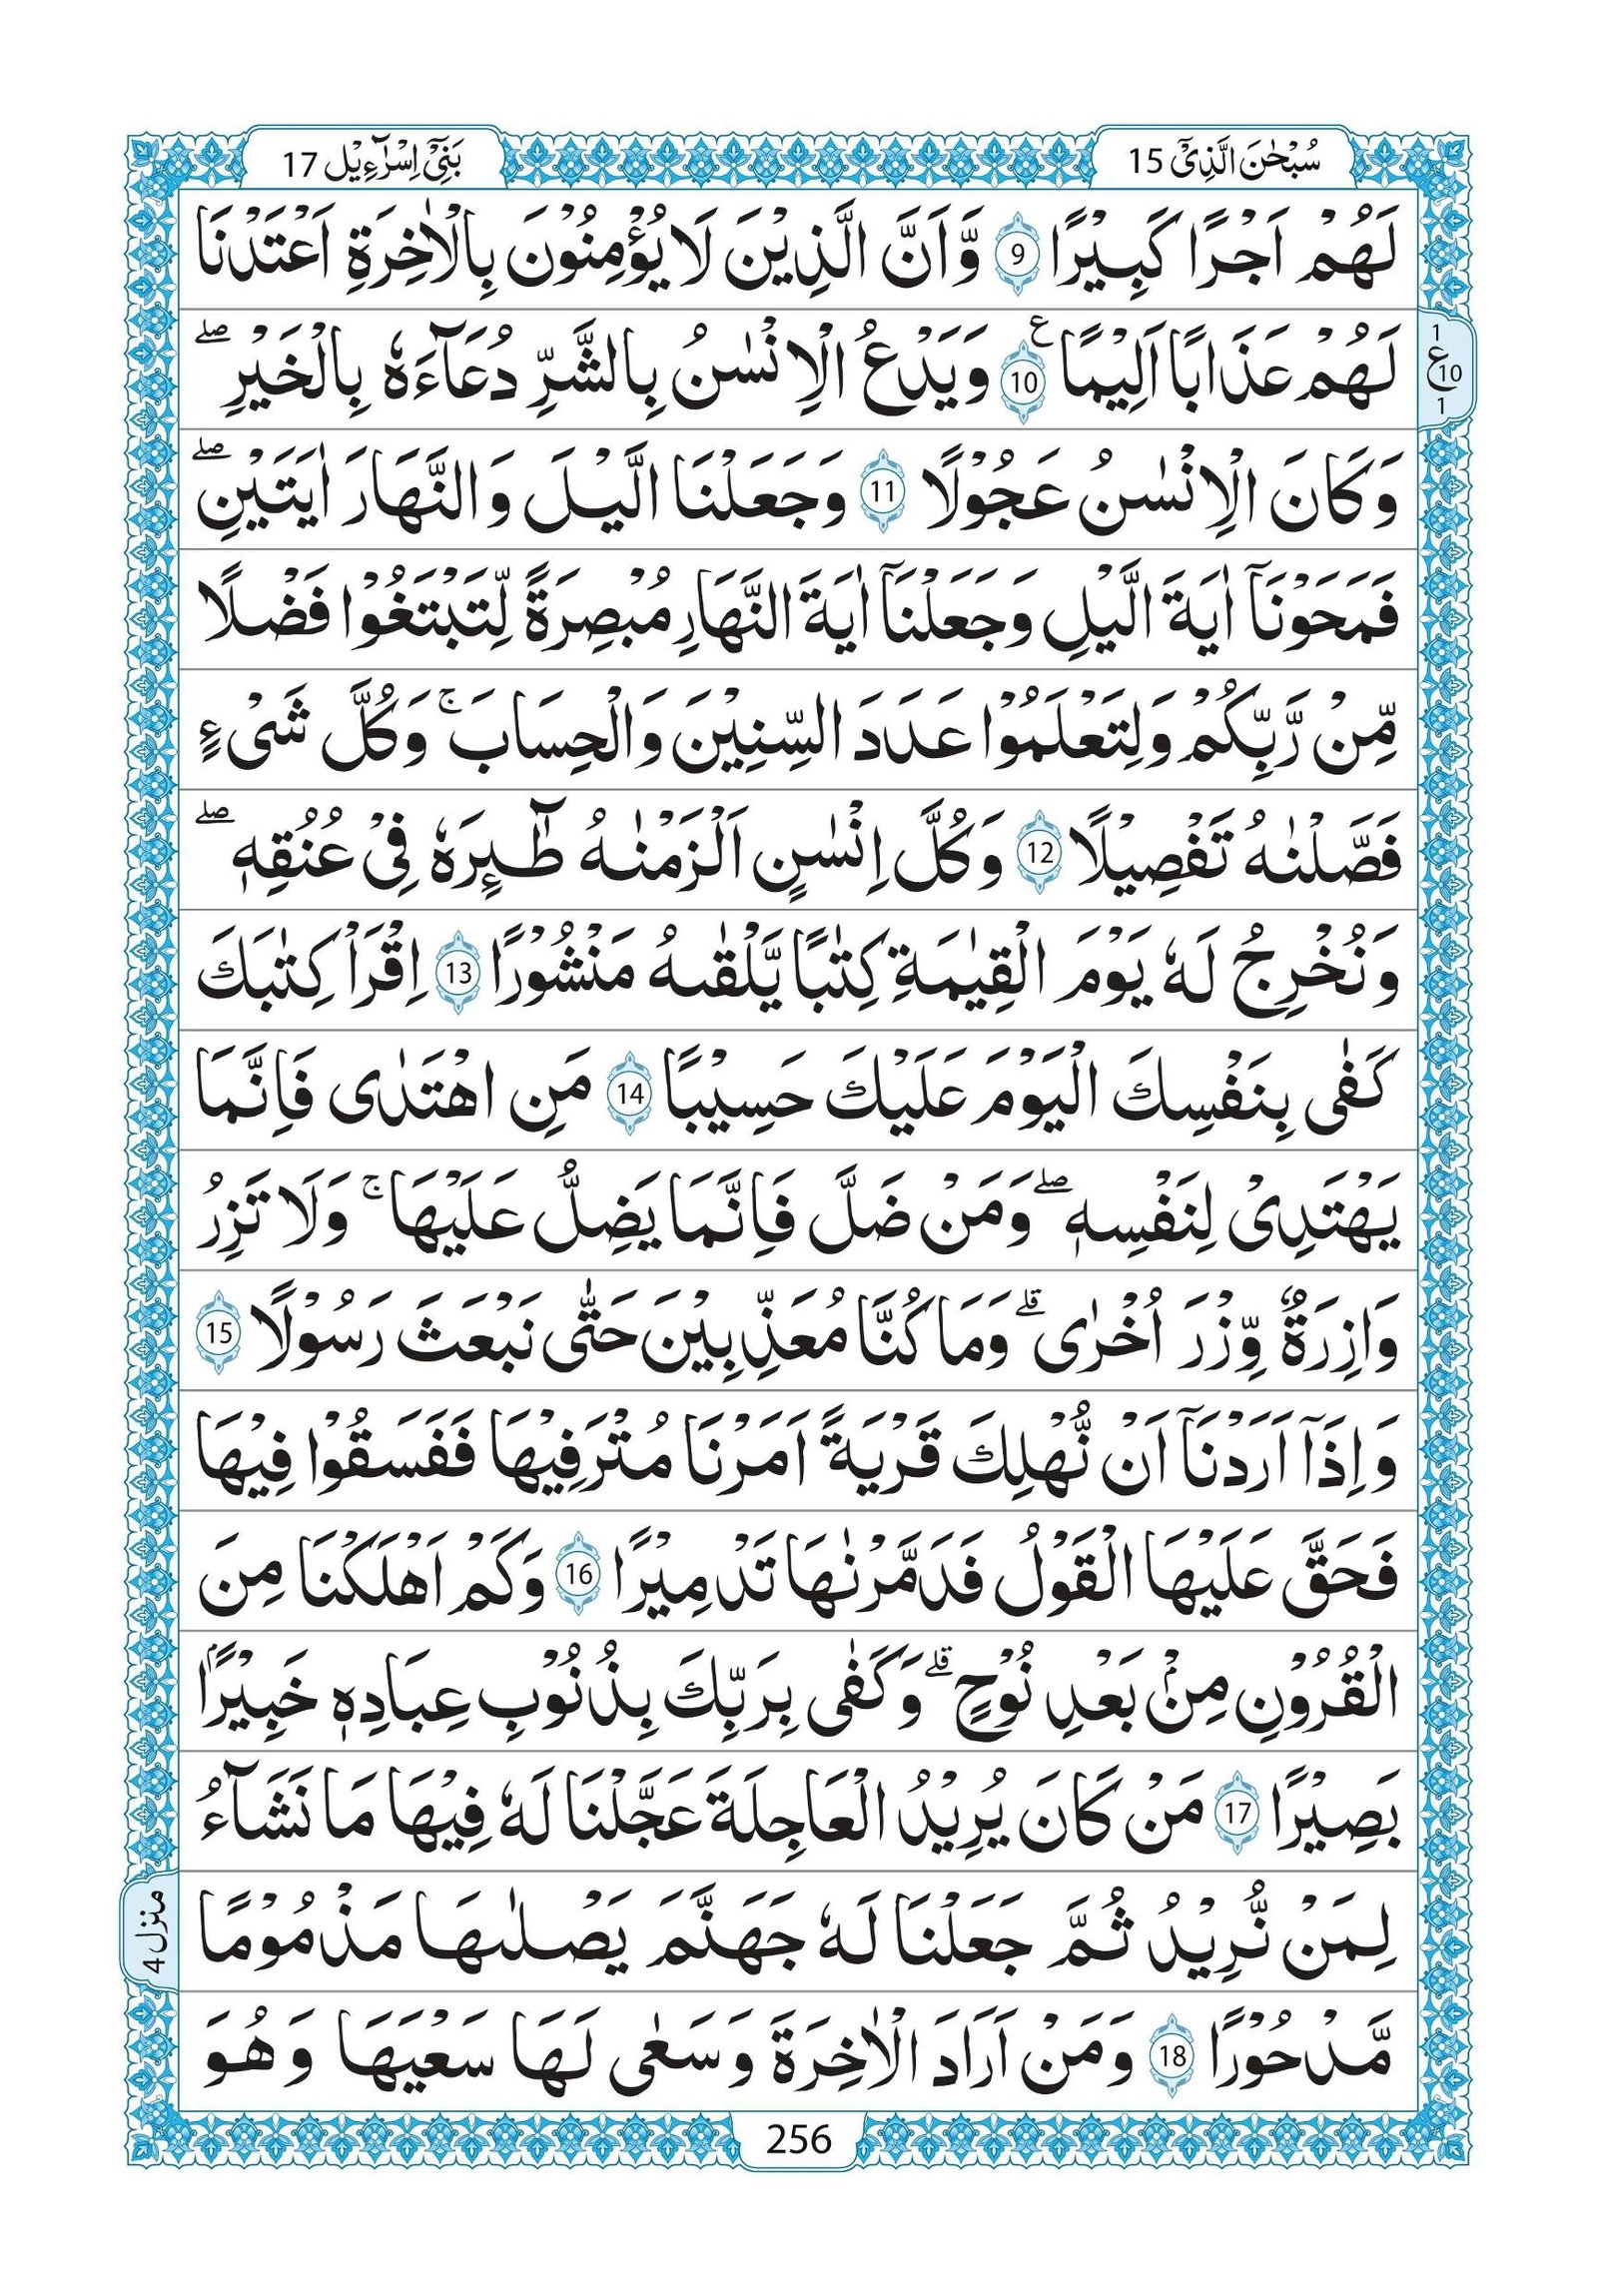 سُبْحٰنَ الَّذِیْۤ 15
بَنِیْۤ اِسْرَآءِیْل 17
لَهُمْ اَجْرًا كَبِیْرًا 9 وَّ اَنَّ الَّذِیْنَ لَا یُؤْمِنُوْنَ بِالْاٰخِرَةِ اَعْتَدْنَا
لَهُمْ عَذَابًا اَلِیْمًا 10 ع وَیَدْعُ الْاِنْسٰنُ بِالشَّرِّ دُعَآءَهٗ بِالْخَیْرِ ۖ
1 ع 10 1
وَكَانَ الْاِنْسٰنُ عَجُوْلًا 11 وَجَعَلْنَا الَّیْلَ وَالنَّهَارَ اٰیَتَیْنِ ۖ
فَمَحَوْنَاۤ اٰیَةَ الَّیْلِ وَجَعَلْنَاۤ اٰیَةَ النَّهَارِ مُبْصِرَةً لِّتَبْتَغُوْا فَضْلًا
مِّنْ رَّبِّكُمْ وَلِتَعْلَمُوْا عَدَدَ السِّنِیْنَ وَالْحِسَابَ ۚ وَكُلَّ شَیْءٍ
فَصَّلْنٰهُ تَفْصِیْلًا 12 وَكُلَّ اِنْسٰنٍ اَلْزَمْنٰهُ طٰٓئِرَهٗ فِیْ عُنُقِهٖ ۖ
وَنُخْرِجُ لَهٗ یَوْمَ الْقِیٰمَةِ كِتٰبًا یَّلْقٰىهُ مَنْشُوْرًا 13 اِقْرَاْ كِتٰبَكَ
كَفٰی بِنَفْسِكَ الْیَوْمَ عَلَیْكَ حَسِیْبًا 14 مَنِ اهْتَدٰی فَاِنَّمَا
یَهْتَدِیْ لِنَفْسِهٖ ۖ وَمَنْ ضَلَّ فَاِنَّمَا یَضِلُّ عَلَیْهَا ۚ وَلَا تَزِرُ
وَازِرَةٌ وِّزْرَ اُخْرٰی ۗ وَمَا كُنَّا مُعَذِّبِیْنَ حَتّٰی نَبْعَثَ رَسُوْلًا 15
وَاِذَاۤ اَرَدْنَاۤ اَنْ نُّهْلِكَ قَرْیَةً اَمَرْنَا مُتْرَفِیْهَا فَفَسَقُوْا فِیْهَا
فَحَقَّ عَلَیْهَا الْقَوْلُ فَدَمَّرْنٰهَا تَدْمِیْرًا 16 وَكَمْ اَهْلَكْنَا مِنَ
الْقُرُوْنِ مِنْۢ بَعْدِ نُوْحٍ ۗ وَكَفٰی بِرَبِّكَ بِذُنُوْبِ عِبَادِهٖ خَبِیْرًۢا
بَصِیْرًا 17 مَنْ كَانَ یُرِیْدُ الْعَاجِلَةَ عَجَّلْنَا لَهٗ فِیْهَا مَا نَشَآءُ
لِمَنْ نُّرِیْدُ ثُمَّ جَعَلْنَا لَهٗ جَهَنَّمَ یَصْلٰىهَا مَذْمُوْمًا
منزل 4
مَّدْحُوْرًا 18 وَمَنْ اَرَادَ الْاٰخِرَةَ وَسَعٰی لَهَا سَعْیَهَا وَهُوَ
256